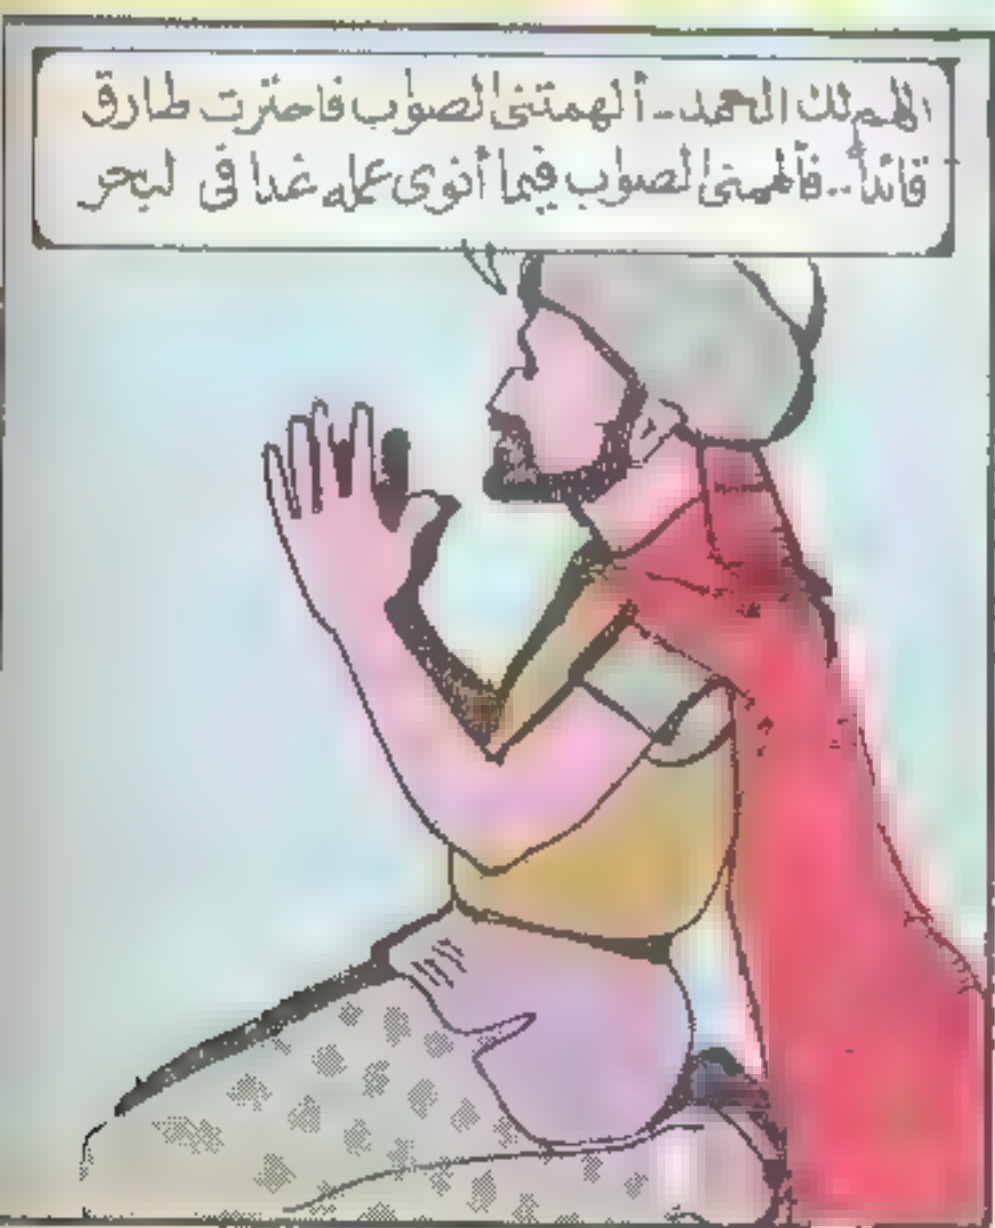 اللهم لك الحمد - ألهمتنى الصواب فاخترت طارق
قائداً .. فألهمنى الصواب فيما أنوى عمله غدا فى البحر